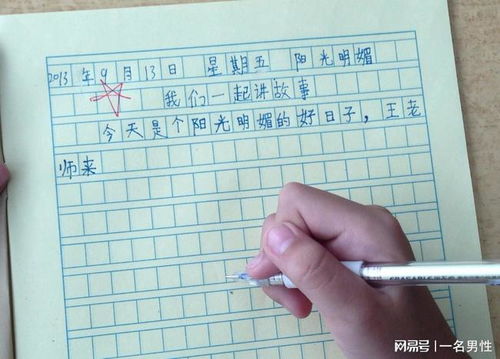 2013年9月13日 星期五 阳光明媚
我们一起讲故事
今天是个阳光明媚的好日子，王老
师来
网易号 | 一名男性